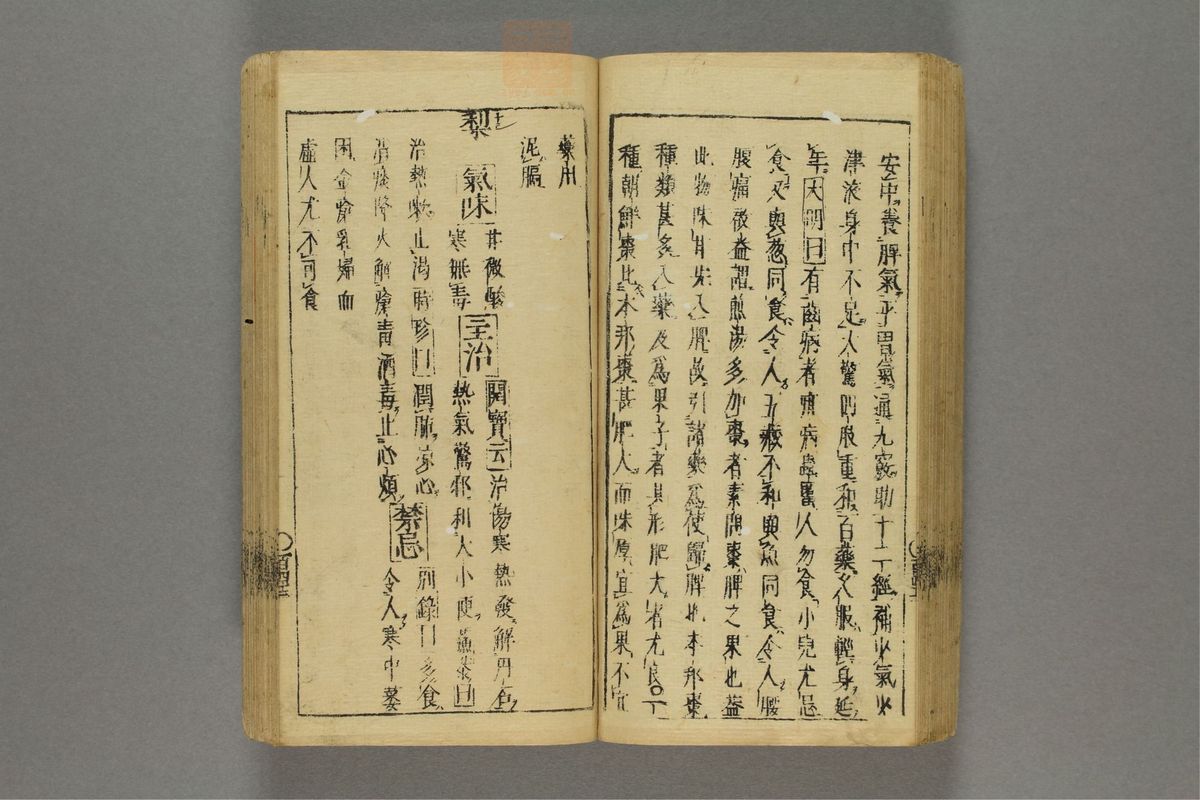 安中養脾氣平胃氣通九竅助十二經補少氣少
津液身中不足大驚四肢重和百藥久服輕身延
年大明曰有齒病者疳病蟲𧏾人勿食小兒尤忌
食又與葱同食令人五臟不和與魚同食令人腰
腹痛最益謂煎湯多加棗者素問棗脾之果也蓋
此物味甘先入脾故引諸藥爲使歸脾也本邦棗
種類甚多入藥及爲果子者其形肥大者尤良〇一
種朝鮮棗比本邦棗甚肥大而味厚宜爲果不宜
藥用
泥膈
梨
氣味 甘微酸寒無毒 主治 開寶云治傷寒熱發解丹石
熱氣驚邪利大小便
治熱嗽止渴時珍曰潤肺凉心
消痰降火解瘡毒酒毒止心煩 禁忌 別錄曰多食
令人寒中萎
困金瘡乳婦血
虛人尤不可食